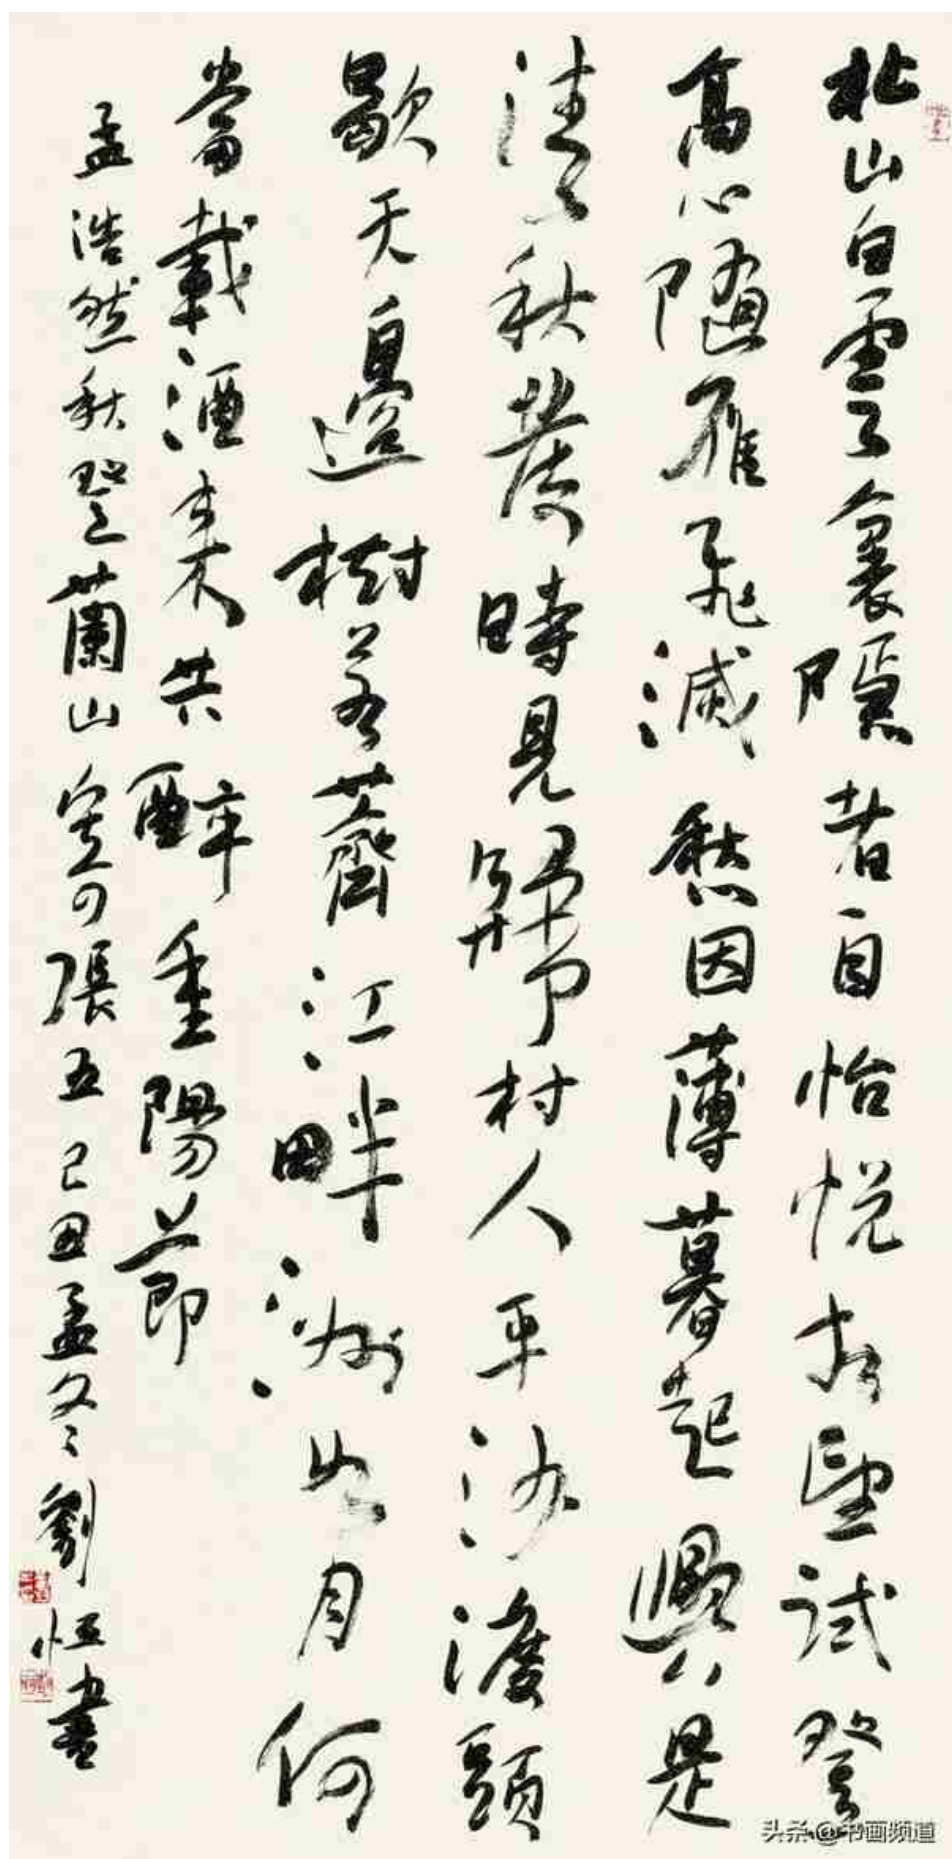 北山白雲裏隱者自怡悦相望試登
高心隨雁飛滅愁因薄暮起興是
清秋發時見歸村人平沙渡頭
歇天邊樹若薺江畔洲如月何
當載酒來共醉重陽節
孟浩然秋登蘭山寄張五己丑孟冬劉恒書
头条 @书画频道